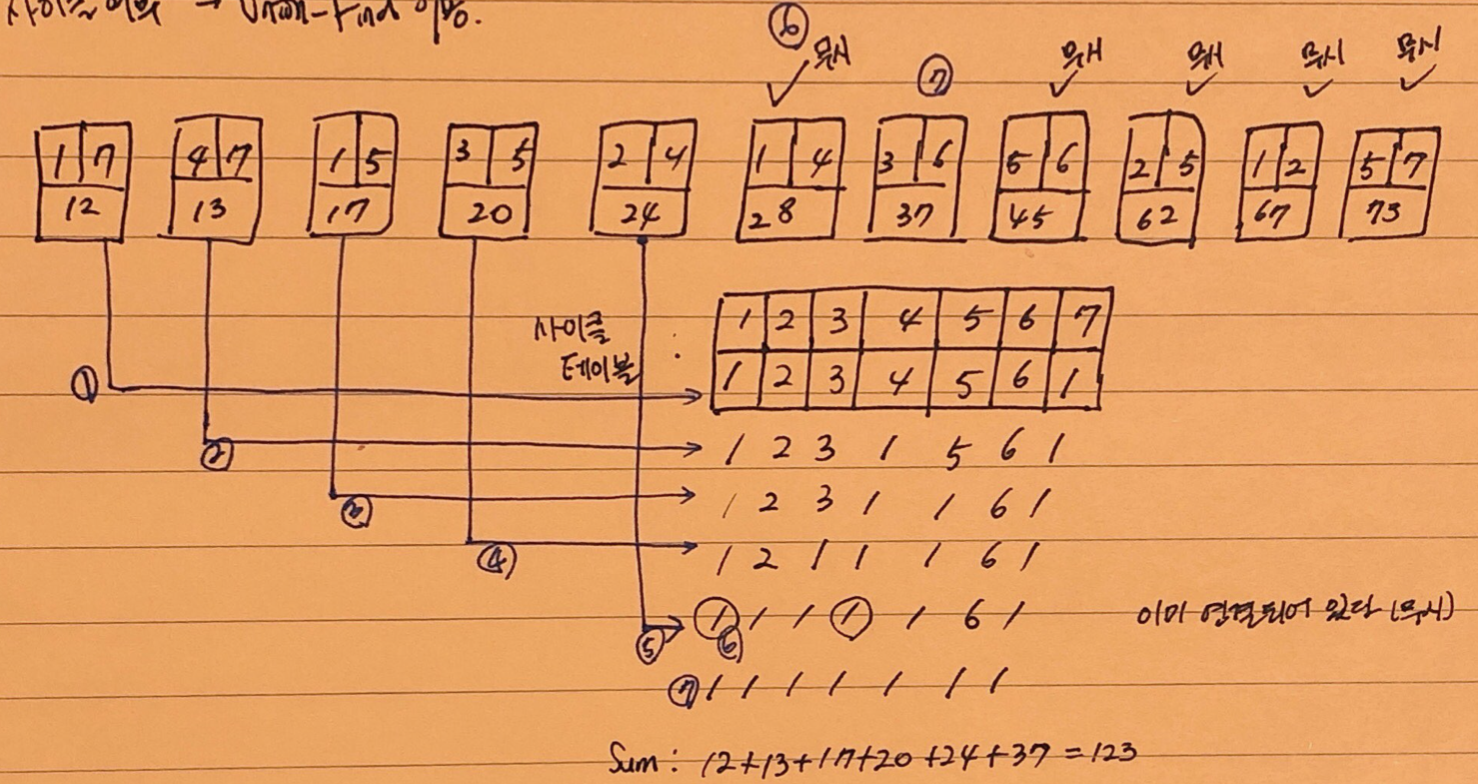 사이클 여부 → Union-Find 이용.
⑥ 무시 ⑦ 무시 무시 무시 무시
1 7 4 7 1 5 3 5 2 4 1 4 3 6 5 6 2 5 1 2 5 7
12 13 17 20 24 28 37 45 62 67 73
사이클 테이블 :
1 2 3 4 5 6 7
① 1 2 3 4 5 6 1
② 1 2 3 1 5 6 1
③ 1 2 3 1 1 6 1
④ 1 2 1 1 1 6 1
⑤ 1 1 1 1 1 6 1 이미 연결되어 있다 (무시)
⑥
⑦ 1 1 1 1 1 1 1
Sum : 12+13+17+20+24+37 = 123